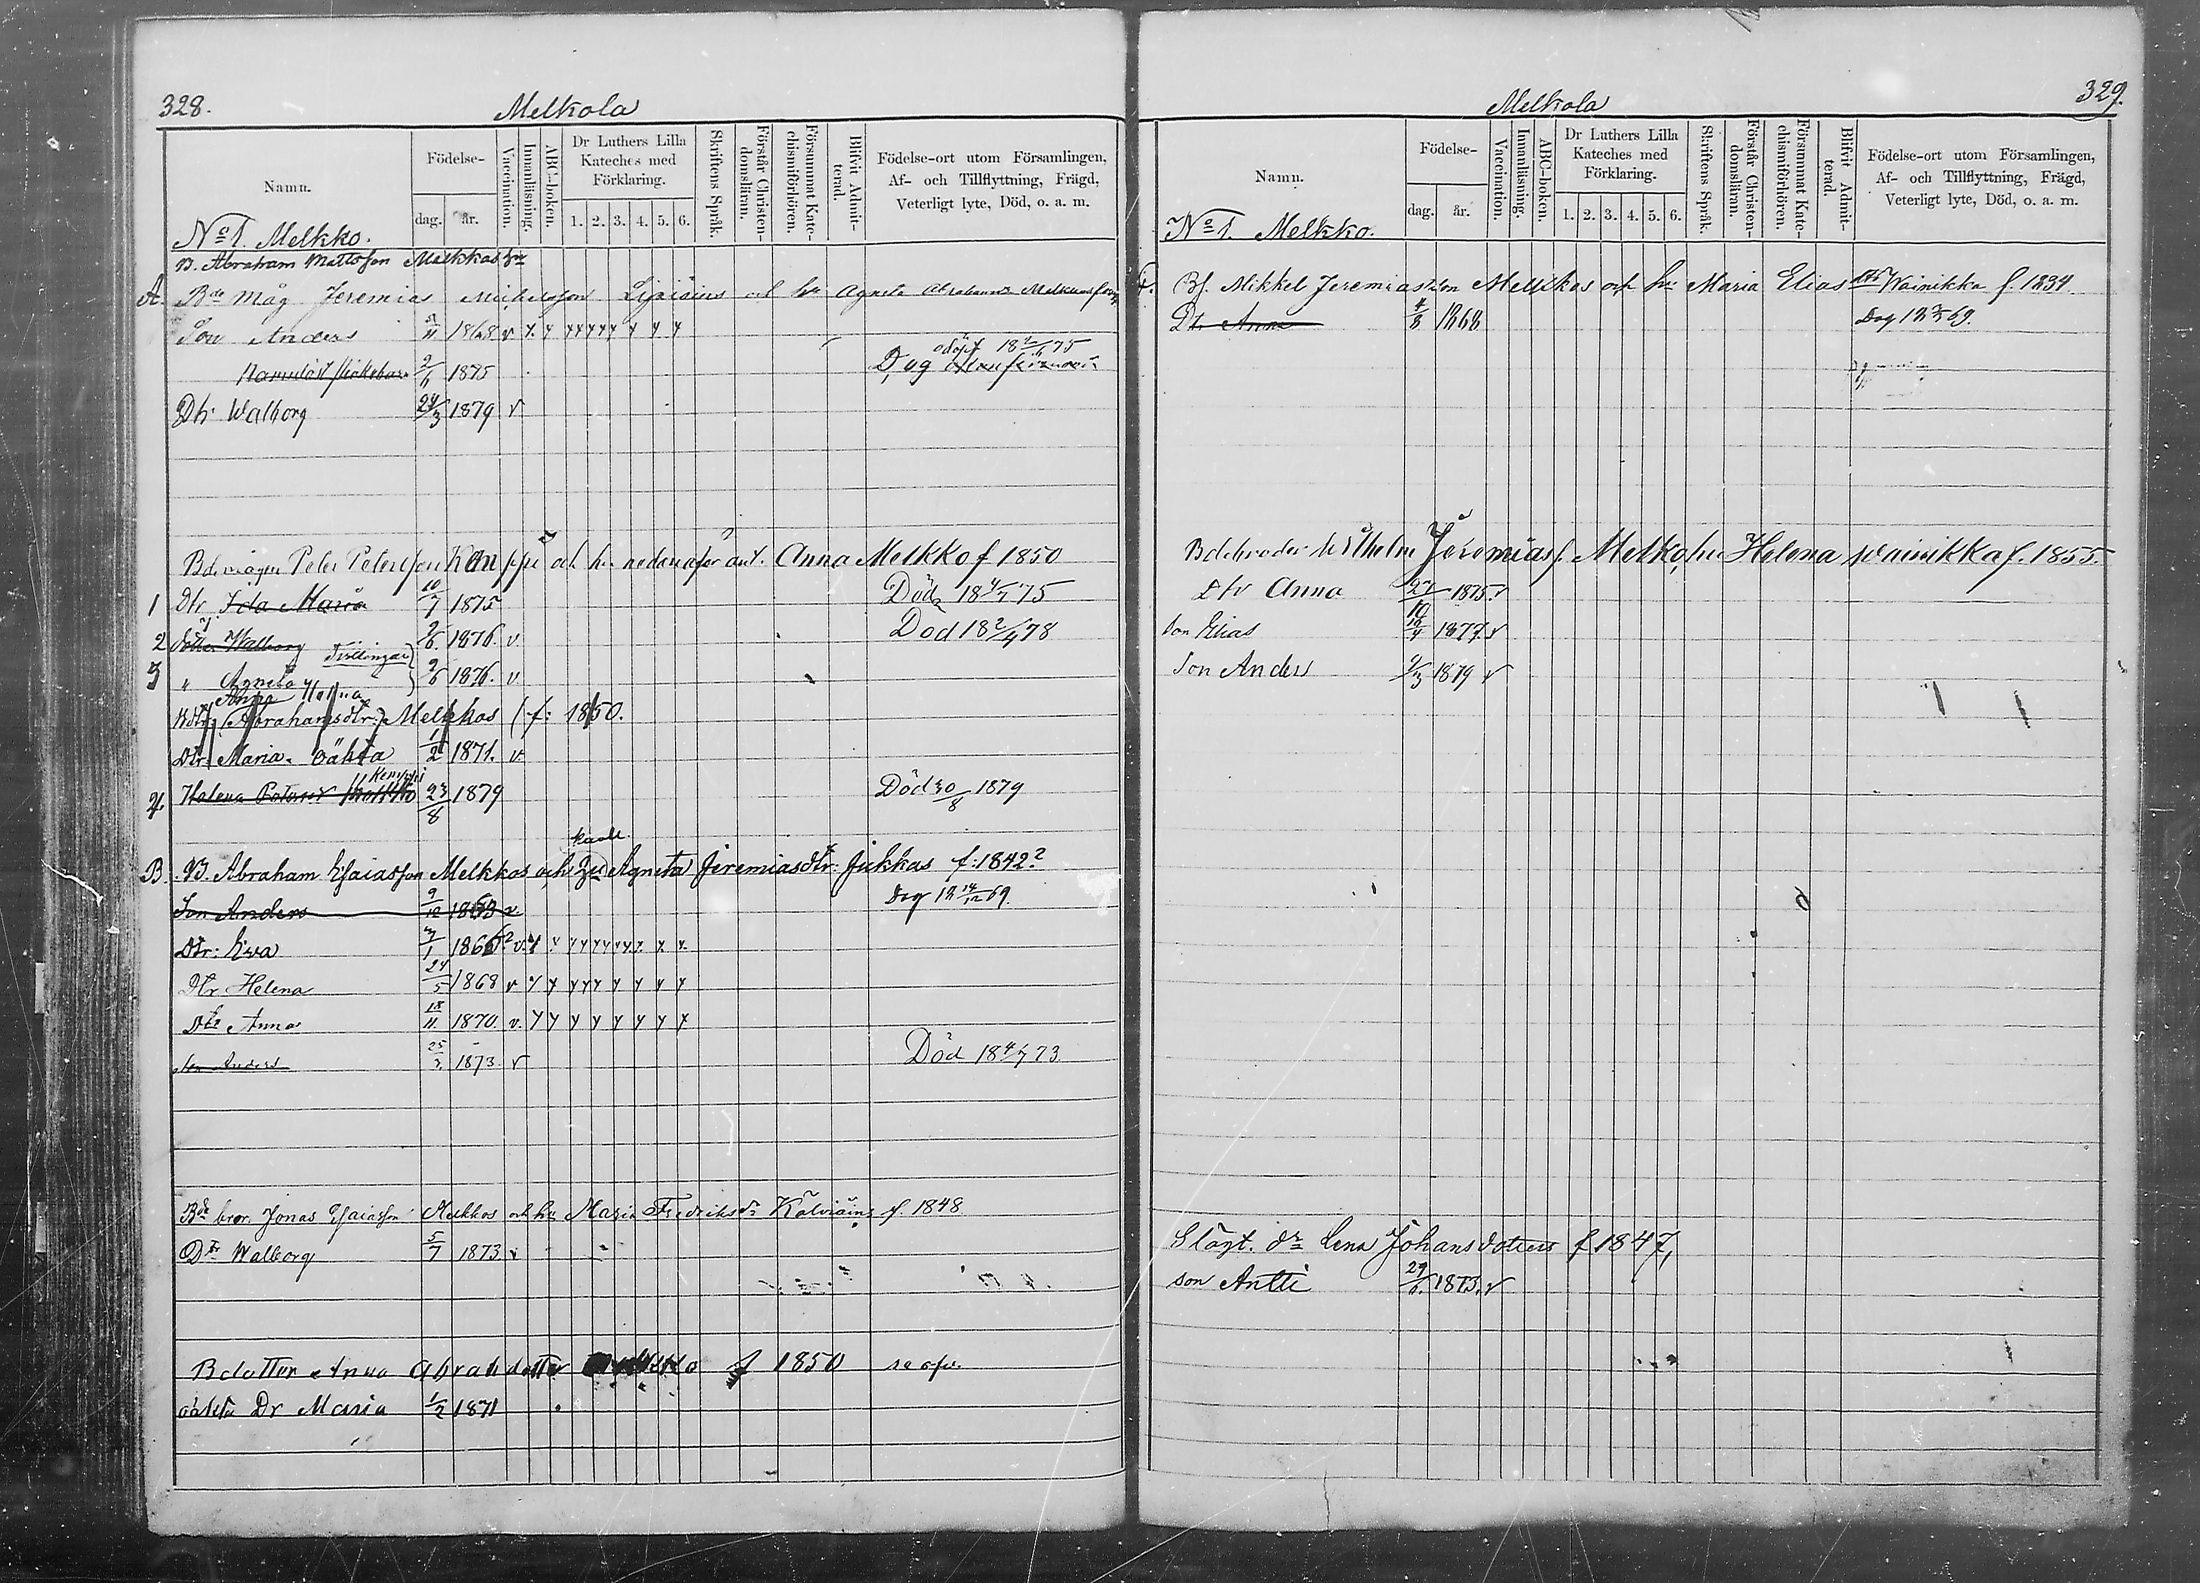 328.
Melkola
Namn.
Födelse-
dag.
år.
Vaccination.
Innanläsning.
ABC-boken.
Dr Luthers Lilla Kateches med Förklaring.
1. 2. 3. 4. 5. 6.
Skriftens Språk.
Förstår Christen-domsläran.
Försummat Kate-chismiförhören.
Blifvit Admit-terad.
Födelse-ort utom Församlingen, Af- och Tillflyttning, Frägd, Veterligt lyte, Död, o. a. m.
No 1. Melkko.
B. Abraham Mattsson Melkkas
A Bde måg Jeremias Michelsson Lipiäins och hu Agneta Abrahamsd Melkkas
Son Anders 11 1868 v
2/6 1875 odöpt 18 2/6 75
Dtr Walborg 24/3 1879 v
Bdemågen Peter Petersson Kemppi och hu nedanför ant. Anna Melkko f 1850
1 Dtr Ida Maria 10/7 1875 Död 18 75
2 Walborg Tvillingar 2/6 1876. v. Död 18 2/4 78
3 " Agneta 2/6 1876. v.
Anna Helena
Bdtr (Abrahamsdtr.) Melkkas (f: 1850.
Dtr: Maria. oäkta 1/2 1871. v.
Kemppi
4. Helena Petersd Melkko 23/8 1879 Död 30/8 1879
kade.
B B. Abraham Esaiasson Melkkas och hu Agneta Jeremiasdtr: Jukkas f: 1842?
Son Anders 9/12 1863 v Dog 18 14/12 69.
Dtr: Ewa 3/1 1866? v.
Dtr Helena 24/5 1868 v
Dtr Anna 18/11 1870. v.
Son Anders 25/3 1873. v Död 18 4/7 73
Bde bror Jonas Esaiasson Melkkas och hu Maria Fredriksdr Kälviäins f. 1848
Dtr Walborg 5/7 1873 v
Bdotter Anna Abrahdotter Melkko f 1850 se ofv.
oäkta Dr Maria 1/2 1871
329.
Melkola
Namn.
Födelse-
dag.
år.
Vaccination.
Innanläsning.
ABC-boken.
Dr Luthers Lilla Kateches med Förklaring.
1. 2. 3. 4. 5. 6.
Skriftens Språk.
Förstår Christen-domsläran.
Försummat Kate-chismiförhören.
Blifvit Admit-terad.
Födelse-ort utom Församlingen, Af- och Tillflyttning, Frägd, Veterligt lyte, Död, o. a. m.
No 1. Melkko.
Bf. Mikkel Jeremiasson Melkkas och hu Maria Elias dtr Wainikka f. 1834.
Dtr Anna 4/8 1868 Dog 18 69.
Bdebroder Wilhelm Jeremiasf. Melko, hu Helena Wainikka f. 1855.
Dtr Anna 27/10 1875. v
Son Elias 18/4 1877. v
Son Anders 9/3 1879 v
Slägt. dr Lena Johansdotter f 1847,
son Antti 29/6. 1873. v